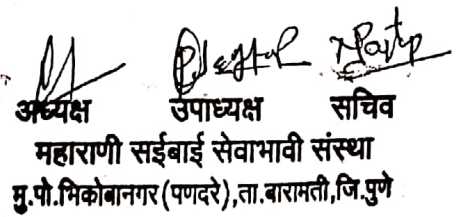 अध्यक्ष उपाध्यक्ष सचिव
महाराणी सईबाई सेवाभावी संस्था
मु.पो.भिकोबानगर(पणदरे),ता.बारामती,जि.पुणे